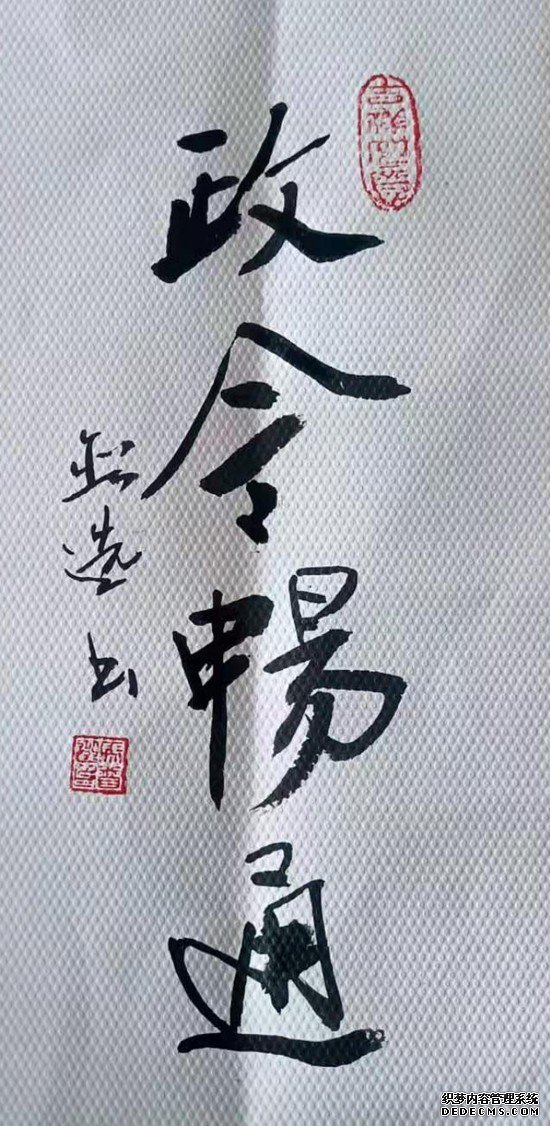 政令暢通
选书
织梦内容管理系统
DEDECMS.COM